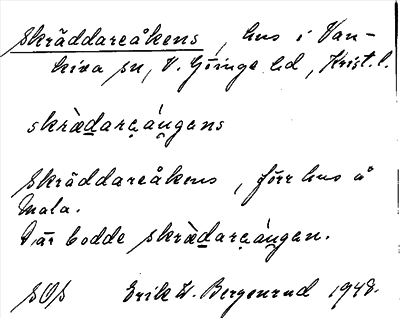 Skräddareåkens, hus i Van-
kiva sn, V. Göinge hd, Krist. l.
skrædaraángans
Skräddareåkens, förr hus å
Mala.
Där bodde skrædaraángen.
SOS Erik W. Bergenrud 1948.